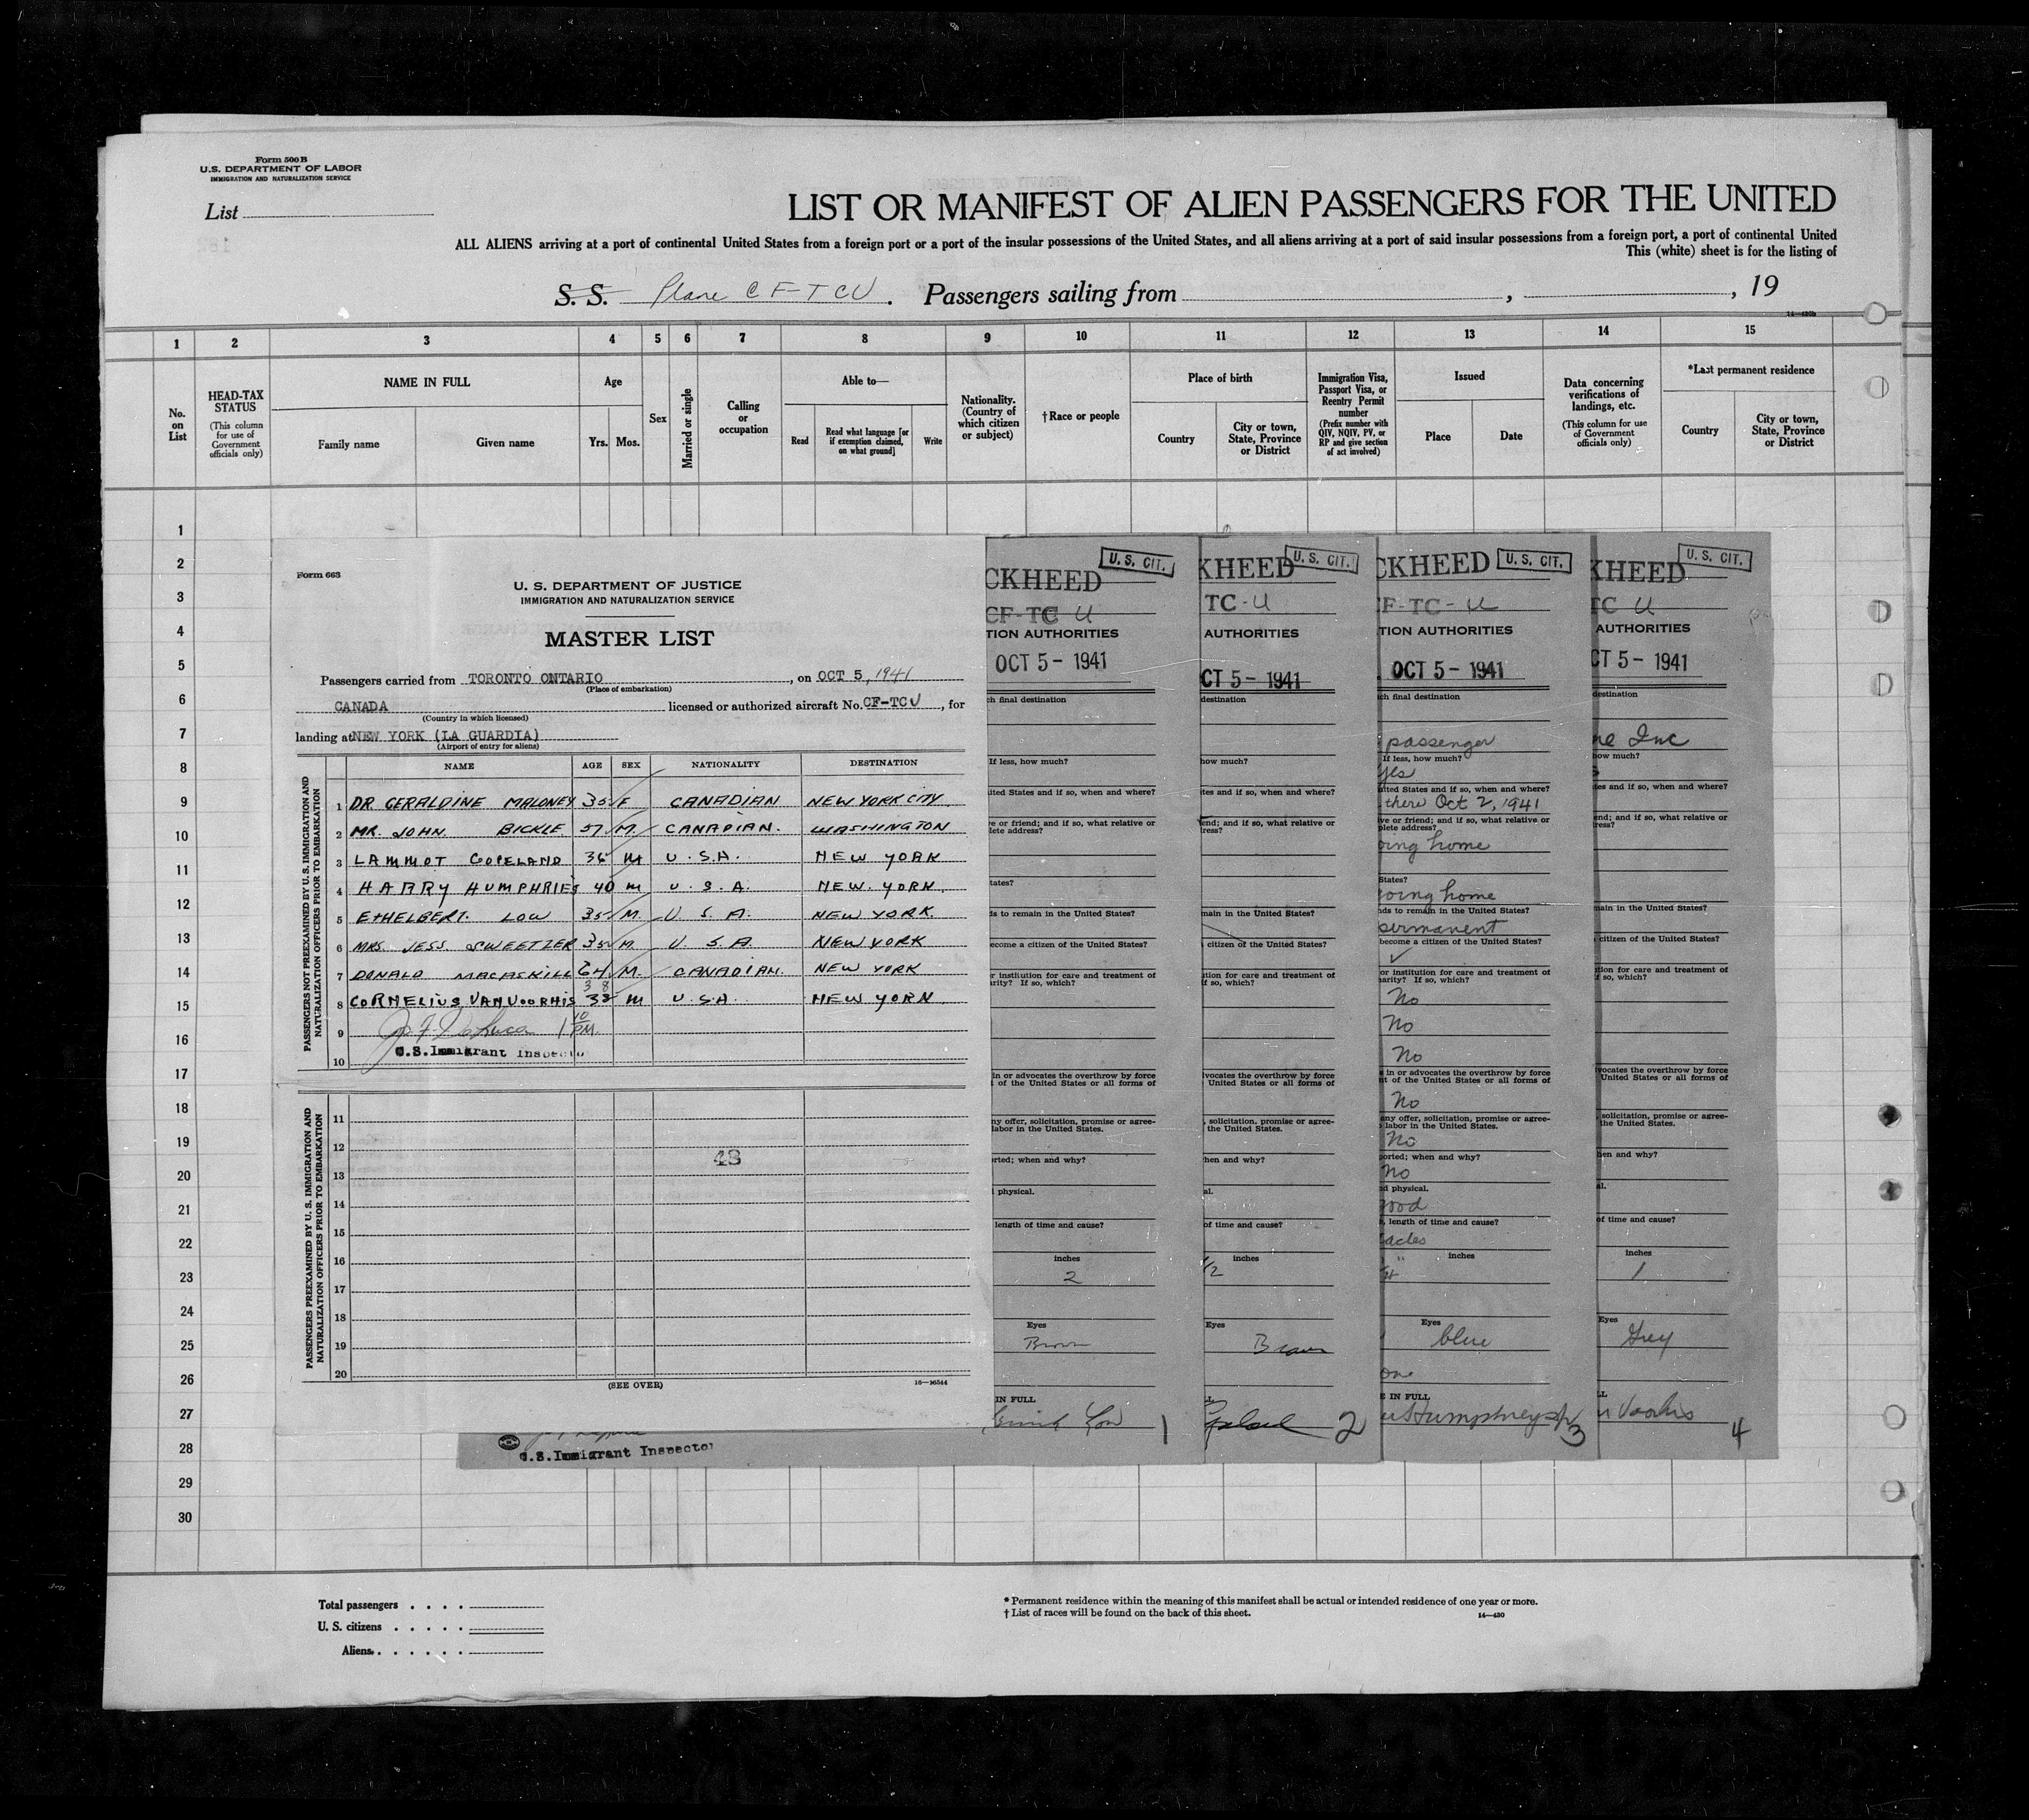 Form 500B
U.S. DEPARTMENT OF LABOR
IMMIGRATION AND NATURALIZATION SERVICE
List
LIST OR MANIFEST OF ALIEN PASSENGERS FOR THE UNITED
ALL ALIENS arriving at a port of continental United States from a foreign port or a port of the insular possessions of the United States, and all aliens arriving at a port of said insular possessions from a foreign port, a port of continental United
This (white) sheet is for the listing of
S. S. Plane CF-TCU. Passengers sailing from , , 19
14—430b
1 2 3 4 5 6 7 8 9 10 11 12 13 14 15
No. on List
HEAD-TAX STATUS (This column for use of Government officials only)
NAME IN FULL
Family name Given name
Age
Yrs. Mos.
Sex
Married or single
Calling or occupation
Able to—
Read Read what language [or if exemption claimed, on what ground] Write
Nationality. (Country of which citizen or subject)
†Race or people
Place of birth
Country City or town, State, Province or District
Immigration Visa, Passport Visa, or Reentry Permit number (Prefix number with QIV, NQIV, PV, or RP and give section of act involved)
Issued
Place Date
Data concerning verifications of landings, etc. (This column for use of Government officials only)
*Last permanent residence
Country City or town, State, Province or District
1
2
3
4
5
6
7
8
9
10
11
12
13
14
15
16
17
18
19
20
21
22
23
24
25
26
27
28
29
30
Form 663
U. S. DEPARTMENT OF JUSTICE
IMMIGRATION AND NATURALIZATION SERVICE
MASTER LIST
Passengers carried from TORONTO ONTARIO, on OCT 5, 1941
(Place of embarkation)
CANADA licensed or authorized aircraft No. CF-TCU, for
(Country in which licensed)
landing at NEW YORK (LA GUARDIA)
(Airport of entry for aliens)
NAME AGE SEX NATIONALITY DESTINATION
PASSENGERS NOT PREEXAMINED BY U. S. IMMIGRATION AND NATURALIZATION OFFICERS PRIOR TO EMBARKATION
1 DR GERALDINE MALONEY 35 F CANADIAN NEW YORK CITY
2 MR. JOHN BICKLE 57 M. CANADIAN. WASHINGTON
3 LAMMOT COPELAND 36 M U.S.A. NEW YORK
4 HARRY HUMPHRIES 40 M U.S.A. NEW YORK.
5 ETHELBERT LOW 35 M. U.S.A. NEW YORK.
6 MRS. JESS SWEETZER 35 M. U.S.A. NEW YORK
7 DONALD MACASKILL 64 M. CANADIAN. NEW YORK
38
8 CORNELIUS VANVOORHIS 38 M U.S.A. NEW YORK
9 1 10 PM.
10 U.S. Immigrant Inspector
PASSENGERS PREEXAMINED BY U. S. IMMIGRATION AND NATURALIZATION OFFICERS PRIOR TO EMBARKATION
11
12
48
13
14
15
16
17
18
19
20
(SEE OVER) 16—16544
U.S. Immigrant Inspector
CKHEED U. S. CIT.
CF-TC U
TION AUTHORITIES
OCT 5 - 1941
ch final destination
If less, how much?
ited States and if so, when and where?
ve or friend; and if so, what relative or
lete address?
tates?
ds to remain in the United States?
ecome a citizen of the United States?
r institution for care and treatment of
arity? If so, which?
in or advocates the overthrow by force
t of the United States or all forms of
ny offer, solicitation, promise or agree-
labor in the United States.
rted; when and why?
physical.
length of time and cause?
inches
2
Eyes
Brown
IN FULL
Low 1
KHEED U. S. CIT.
TC-U
AUTHORITIES
CT 5 - 1941
destination
how much?
tes and if so, when and where?
end; and if so, what relative or
ress?
main in the United States?
citizen of the United States?
tion for care and treatment of
f so, which?
vocates the overthrow by force
United States or all forms of
, solicitation, promise or agree-
the United States.
hen and why?
al.
of time and cause?
inches
1/2
Eyes
Brown
2
CKHEED U. S. CIT.
F-TC-U
TION AUTHORITIES
OCT 5 - 1941
ch final destination
passenger
If less, how much?
yes
ited States and if so, when and where?
there Oct 2, 1941
ve or friend; and if so, what relative or
plete address?
oing home
States?
going home
nds to remain in the United States?
permanent
become a citizen of the United States?
or institution for care and treatment of
harity? If so, which?
No
No
No
s in or advocates the overthrow by force
nt of the United States or all forms of
No
any offer, solicitation, promise or agree-
labor in the United States.
No
ported; when and why?
No
nd physical.
good
, length of time and cause?
tacles
inches
Eyes
blue
one
E IN FULL
Humphreys 3
KHEED U. S. CIT.
TC U
AUTHORITIES
CT 5 - 1941
destination
ne Inc
how much?
s
tes and if so, when and where?
end; and if so, what relative or
ress?
main in the United States?
citizen of the United States?
tion for care and treatment of
f so, which?
vocates the overthrow by force
United States or all forms of
, solicitation, promise or agree-
the United States.
hen and why?
al.
of time and cause?
inches
1
Eyes
Grey
n Voorhis 4
Total passengers
U. S. citizens
Aliens
* Permanent residence within the meaning of this manifest shall be actual or intended residence of one year or more.
† List of races will be found on the back of this sheet. 14—430